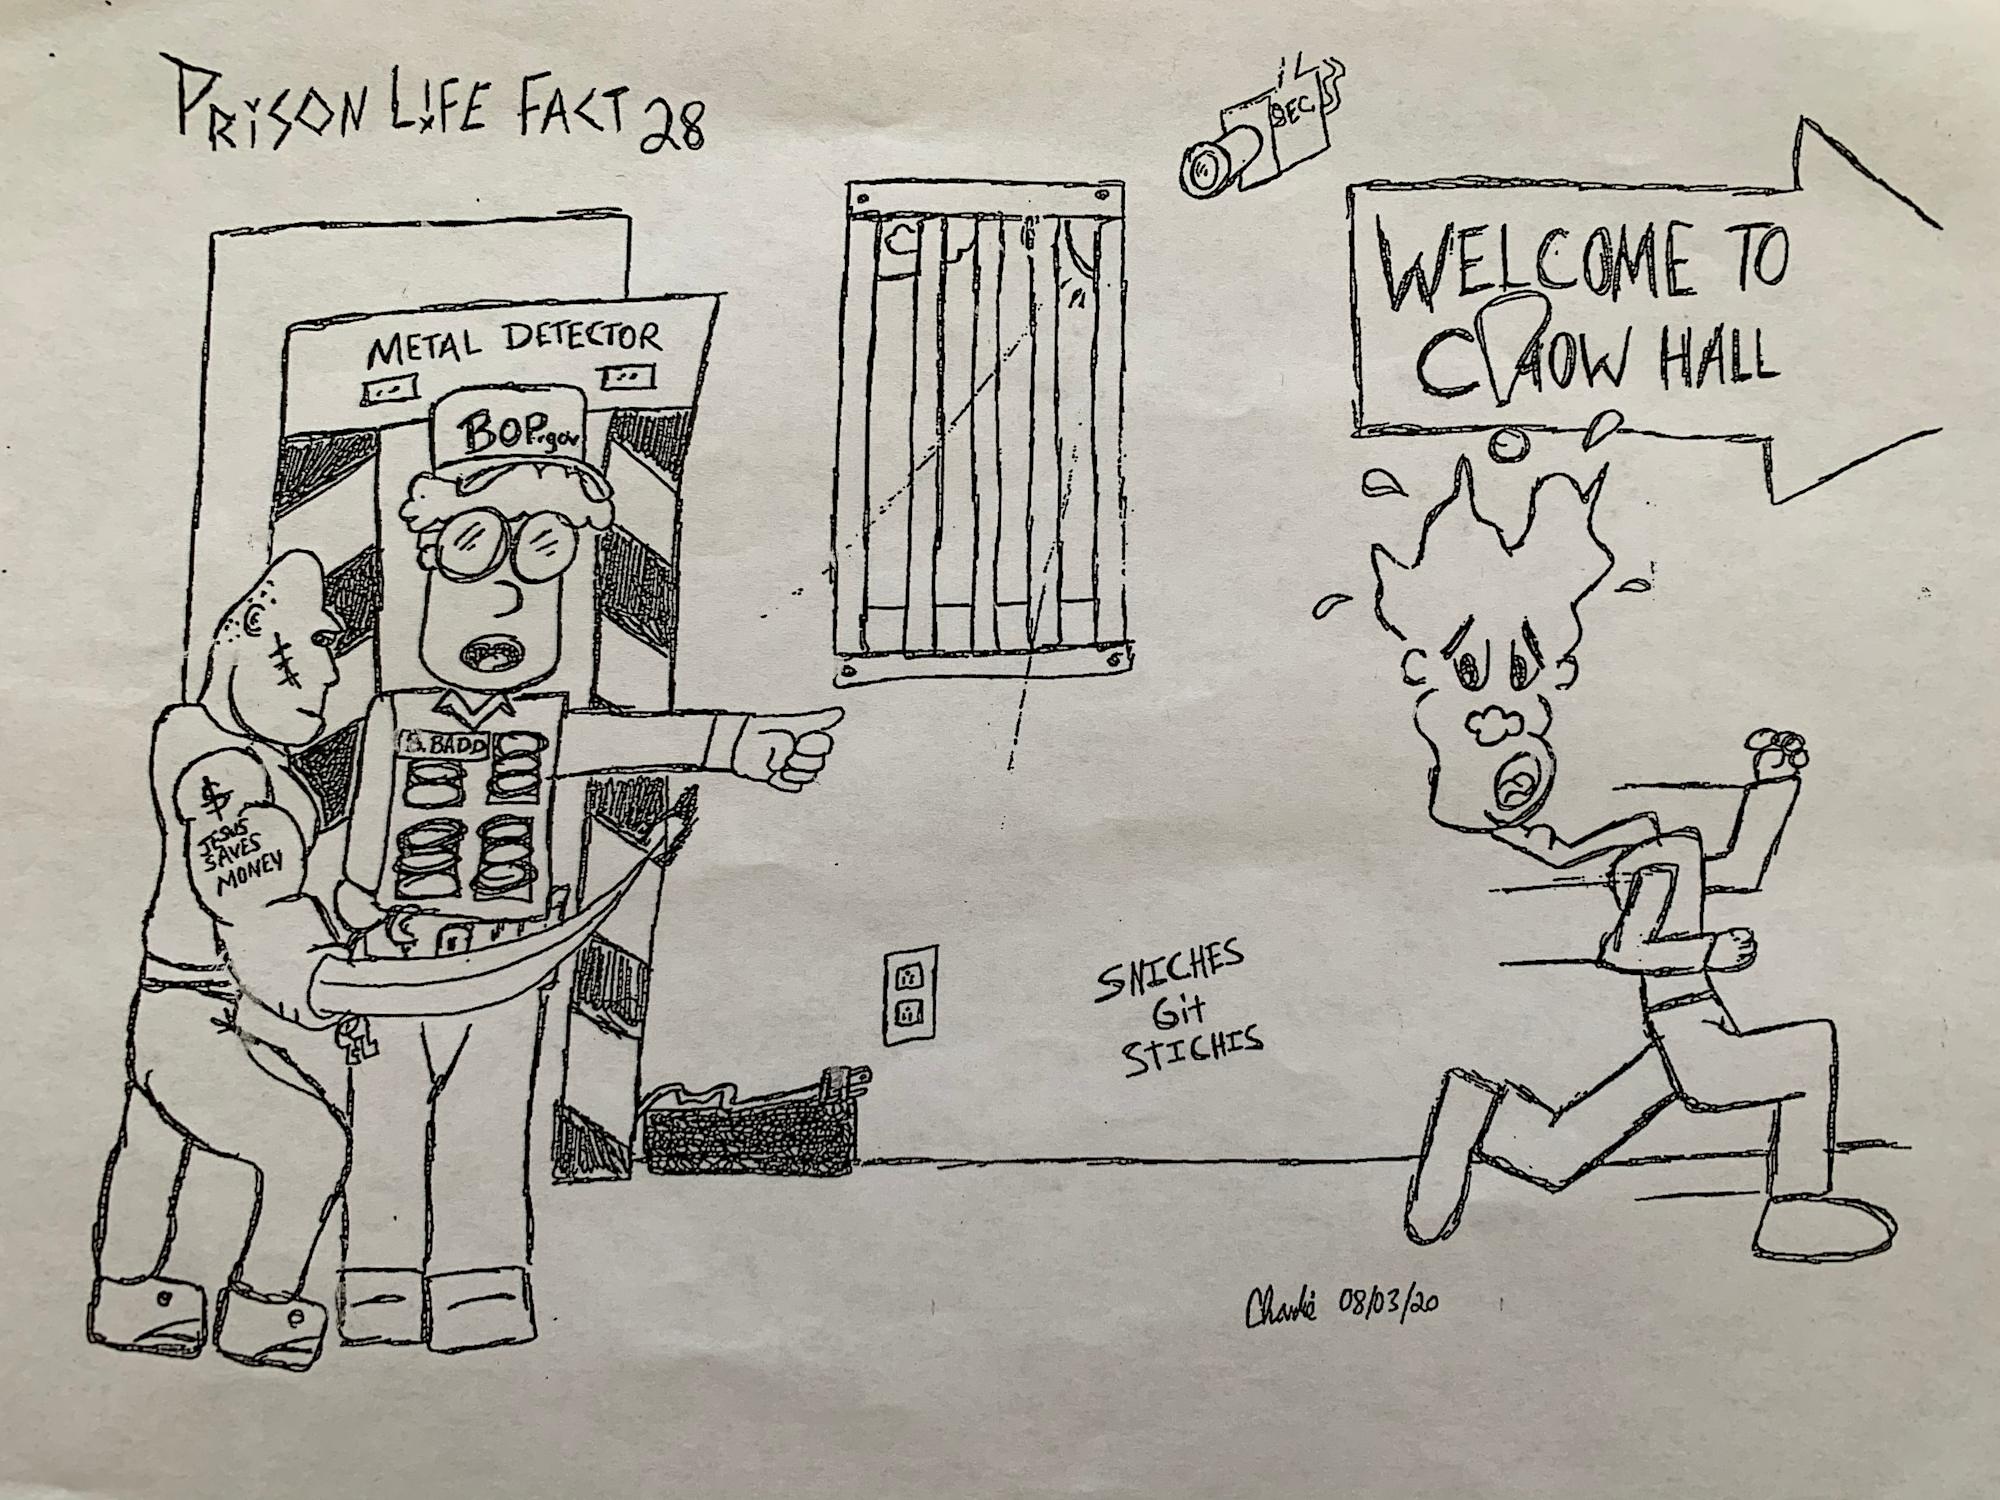 PRISON LIFE FACT 28
SEC.
WELCOME TO
CHOW HALL
METAL DETECTOR
BOP.gov
B. BADD
$
JESUS
SAVES
MONEY
SNICHES
Git
STICHIS
Charlie 08/03/20